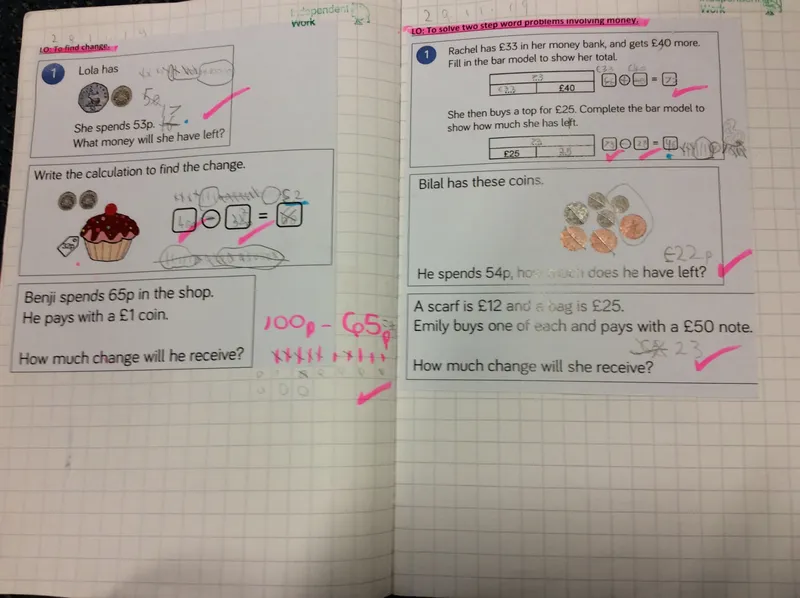 28.11.19
Independent
Work
LO: To find change.
1
Lola has
She spends 53p.
What money will she have left?
Write the calculation to find the change.
52
32p
=
Benji spends 65p in the shop.
He pays with a £1 coin.
100p - 65p
How much change will he receive?
28.11.19
Independent
Work
LO: To solve two step word problems involving money.
1
Rachel has £33 in her money bank, and gets £40 more.
Fill in the bar model to show her total.
£33
£40
73
£33 £40
+ = 73
She then buys a top for £25. Complete the bar model to
show how much she has left.
73
£25
- =
Bilal has these coins.
£22p
He spends 54p, how much does he have left?
A scarf is £12 and a bag is £25.
Emily buys one of each and pays with a £50 note.
23
How much change will she receive?